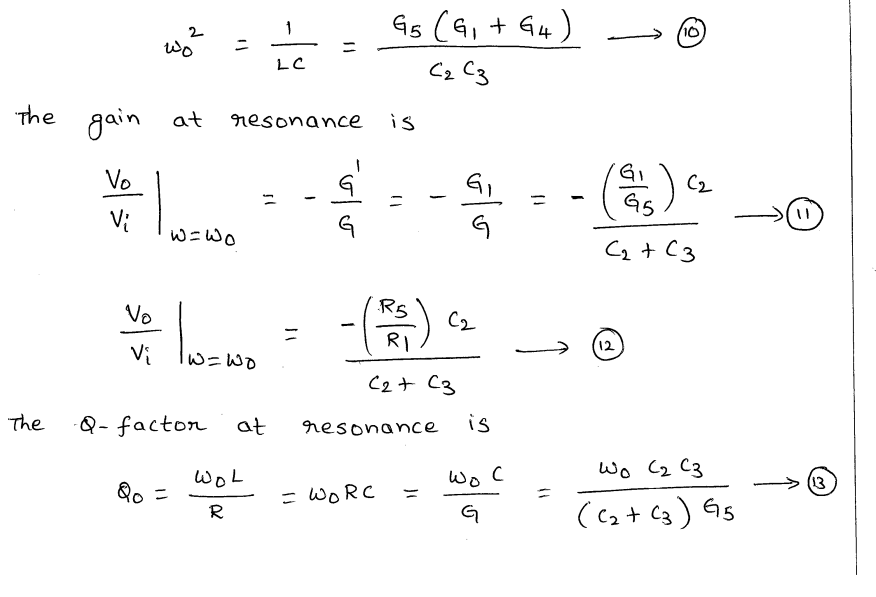 ω₀² = 1/LC = G₅ (G₁ + G₄) / C₂ C₃ ⟶ ⑩
The gain at resonance is
V₀/Vᵢ |ω=ω₀ = - G'/G = - G₁/G = - (G₁/G₅) C₂ / C₂ + C₃ ⟶ ⑪
V₀/Vᵢ |ω=ω₀ = -(R₅/R₁) C₂ / C₂ + C₃ ⟶ ⑫
The Q-factor at resonance is
Q₀ = ω₀L/R = ω₀RC = ω₀C/G = ω₀ C₂ C₃ / (C₂ + C₃) G₅ ⟶ ⑬